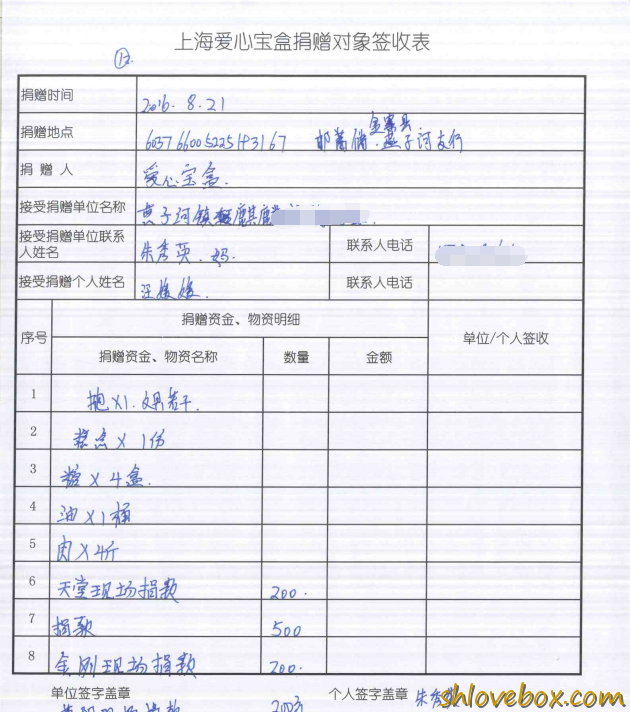 上海爱心宝盒捐赠对象签收表
12.
捐赠时间 2016. 8. 21
金寨县
捐赠地点 邮蓄储.燕子河支行
捐 赠 人 爱心宝盒.
接受捐赠单位名称 子河镇 麒麟
接受捐赠单位联系人姓名 朱秀英. 妈. 联系人电话
接受捐赠个人姓名 汪媛媛. 联系人电话
序号 捐赠资金、物资明细 单位/个人签收
捐赠资金、物资名称 数量 金额
1 抱X1.
2 糕点X1份
3 糖X4盒.
4 油X1桶
5 肉X4斤
6 天堂现场捐款 200.
7 捐款 500
8 金刚现场捐款 200.
单位签字盖章 个人签字盖章 朱秀英
shlovebox.com